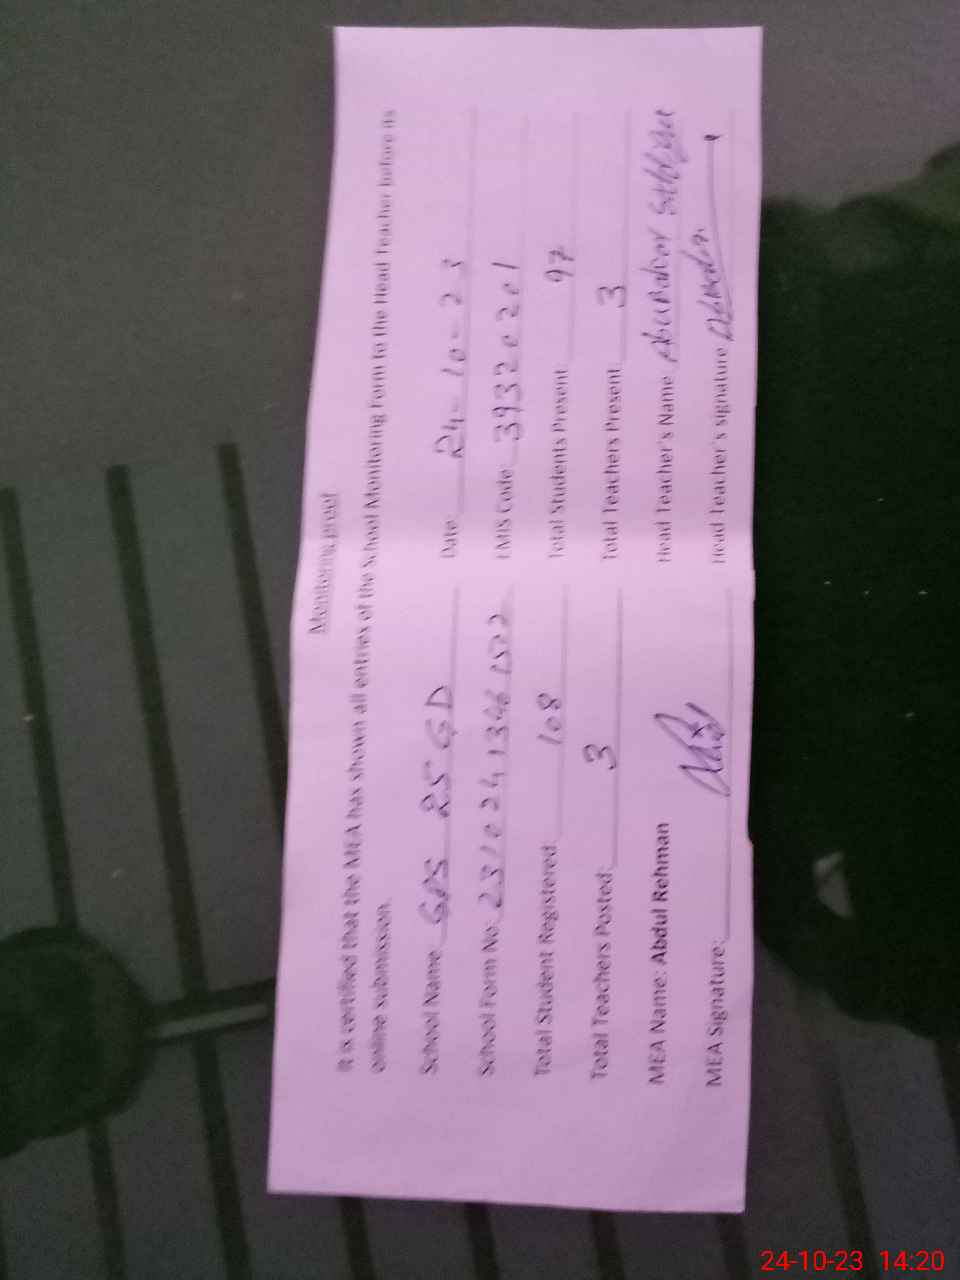 Monitoring proof
It is certified that the MEA has shown all entries of the School Monitoring Form to the Head Teacher before its
online submission.
School Name: GPS 25 GD Date: 24-10-23
School Form No: 231024 1346 1522 EMIS Code: 39320201
Total Student Registered: 108 Total Students Present 97
Total Teachers Posted: 3 Total Teachers Present: 3
MEA Name: Abdul Rehman Head Teacher's Name
MEA Signature: Head Teacher's signature
24-10-23 14:20